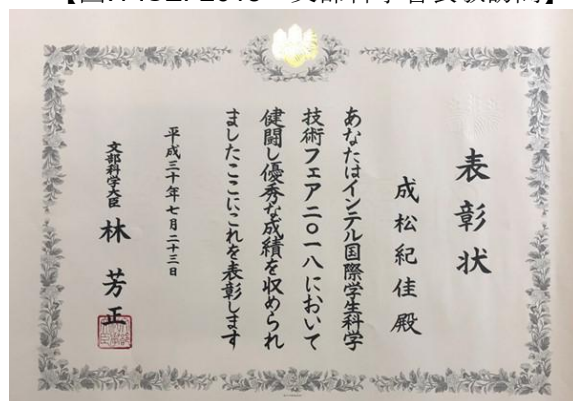 表彰状
成松紀佳殿
あなたはインテル国際学生科学
技術フェア二〇一八において
健闘し優秀な成績を収められ
ましたここにこれを表彰します
平成三十年七月二十三日
文部科学大臣 林 芳正